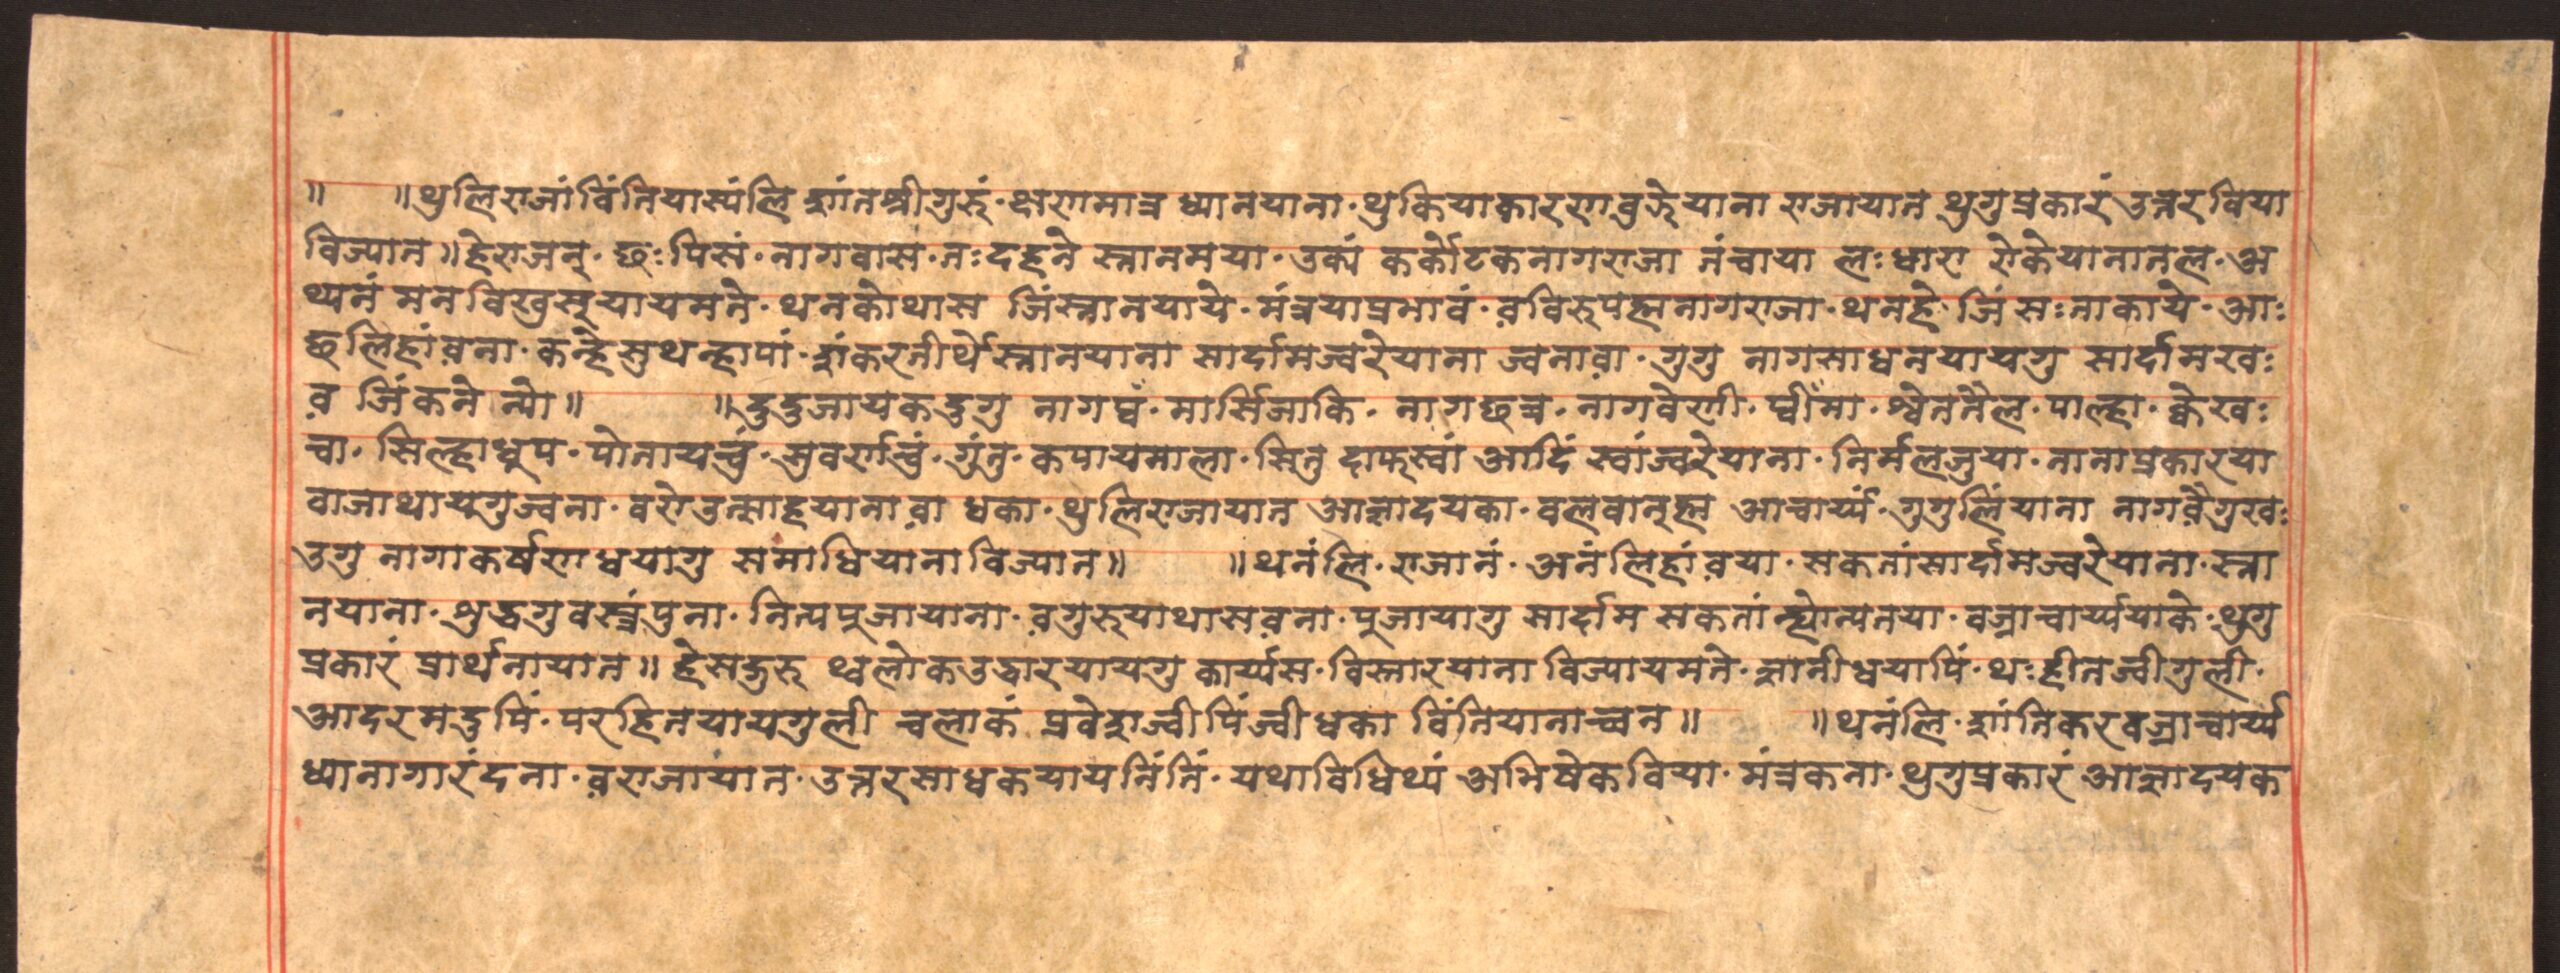 ॥ ॥थुलि राजां विंतियास्यंलि शांत श्रीगुरुं · क्षणमात्र ध्यानयाना · थुकियाकारण वुझेयाना राजायात थुगुप्रकारं उत्तरविया
विज्यात॥ हेराजन् · छःपिसं · नागवास · तःदहने स्नानमया · उक्यं कर्कोटकनागराजा नंचाया लःधारा रोकेयानातल · अ
थ्यनं मनविखुसूयायमते · थनकोथास जिंस्नानयाये · मंत्रयाप्रभावं · व़विरुपाक्षनागराजा · थनहे जिं सःताकाये · आः
छलिहांव़ना · कन्हेसुथन्हापां · शंकरतीर्थेस्नानयाना सार्दामज्वरेयाना ज्वनाव़ा · गुगु नागसाधनयायगु सार्दामखः
व़ जिंकने न्यो॥ ॥दुदुजायकदुगु नागपंथं · मार्सिजाकि · नागछत्र · नागवेणी · घ्वीमा · श्वेततैल · पाल्हा · क्वेखः
चा · सिल्हाधुप · पोतायचुं · सुवर्णचुं · गुंतु · कपायमाला · सितु दाफस्वां आदिं स्वांज्वरेयाना · निर्मलजुया · नानाप्रकारया
वाजाथायगुज्वना · वरोउत्साहयाना व़ा धका · थुलिराजायात आज्ञादयका · वलवानुह्म आचार्य्यं · गुगुलिंयाना नागव़ैगुखः
उगु नागाकर्षण धयागु समाधियाना विज्यात॥ ॥थनंलि · राजानं · अनंलिहांव़या · सकतांसार्दामज्वरेयाना · स्ना
नयाना · शुद्धगुवस्त्रंपुना · नित्यपुजायाना · व़गुरुयाथासव़ना · पुजायागु सार्दाम सकतां न्ह्योन्यतया · वज्राचार्य्ययाके · थुगु
प्रकारं प्रार्थनायात॥ हेसद्गुरु थ्वलोकउद्धारयायगु कार्य्यस · विस्तारयाना विज्यायमते · ज्ञानीधयापिं · थःहीतज्वीगुली ·
आदरमदुपिं · परहितयायगुली चलाकं प्रवेशज्वीपिंज्वीधका विंतियानाच्वन॥ ॥थनंलि · शांतिकरवज्राचार्य्य
ध्यानागारंदना · व़राजायात · उत्तरसाधकयायनिंतिं · यथाविधिथ्यं अभिषेकविया · मंत्रकना · थुगुप्रकारं आज्ञादयक